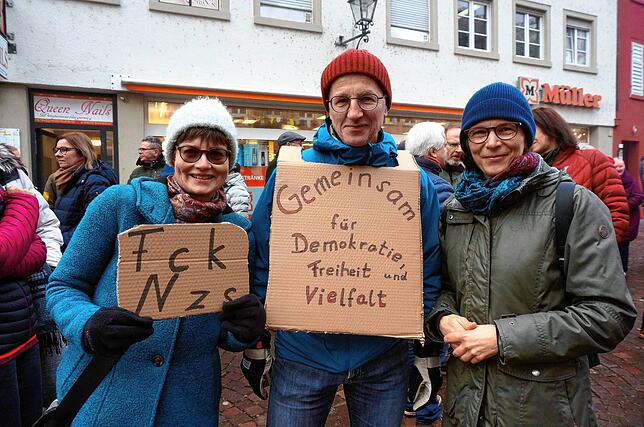 Queen Nails
Müller
GETRÄNKE
Fck
Nzs
Gemeinsam
für
Demokratie,
Freiheit und
Vielfalt